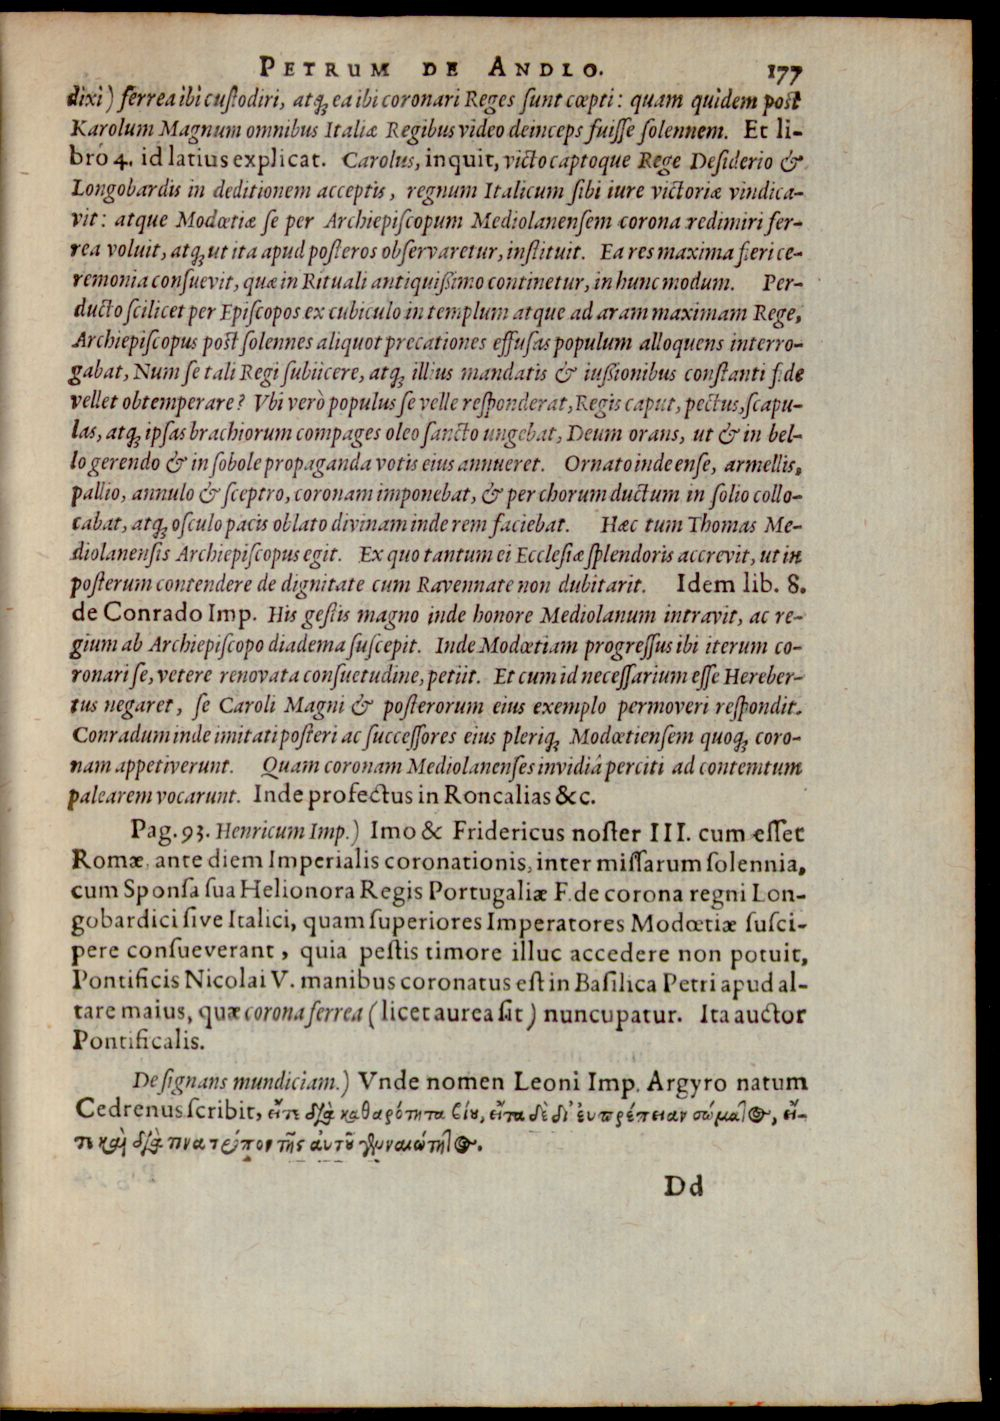 PETRUM DE ANDLO. 177
dixi) ferrea ibi custodiri, atq; ea ibi coronari Reges sunt cœpti: quam quidem post
Karolum Magnum omnibus Italiæ Regibus video deinceps fuisse solennem. Et li-
bro 4. id latius explicat. Carolus, inquit, victo captoque Rege Desiderio &
Longobardis in deditionem acceptis, regnum Italicum sibi iure victoriæ vindica-
vit: atque Modœtiæ se per Archiepiscopum Mediolanensem corona redimiri fer-
rea voluit, atq; ut ita apud posteros observaretur, instituit. Ea res maxima fieri ce-
remonia consuevit, quæ in Rituali antiquißimo continetur, in hunc modum. Per-
ducto scilicet per Episcopos ex cubiculo in templum atque ad aram maximam Rege,
Archiepiscopus post solennes aliquot precationes effusas populum alloquens interro-
gabat, Num se tali Regi subiicere, atq; illius mandatis & iußionibus constanti fide
vellet obtemperare? Vbi verò populus se velle responderat, Regis caput, pectus, scapu-
las, atq; ipsas brachiorum compages oleo sancto ungebat, Deum orans, ut & in bel-
lo gerendo & in sobole propaganda votis eius annueret. Ornato inde ense, armellis,
pallio, annulo & sceptro, coronam imponebat, & per chorum ductum in solio collo-
cabat, atq; osculo pacis oblato divinam inde rem faciebat. Hæc tum Thomas Me-
diolanensis Archiepiscopus egit. Ex quo tantum ei Ecclesiæ splendoris accrevit, ut in
posterum contendere de dignitate cum Ravennate non dubitarit. Idem lib. 8.
de Conrado Imp. His gestis magno inde honore Mediolanum intravit, ac re-
gium ab Archiepiscopo diadema suscepit. Inde Modœtiam progressus ibi iterum co-
ronari se, vetere renovata consuetudine, petiit. Et cum id necessarium esse Hereber-
tus negaret, se Caroli Magni & posterorum eius exemplo permoveri respondit.
Conradum inde imitati posteri ac successores eius pleriq; Modœtiensem quoq; coro-
nam appetiverunt. Quam coronam Mediolanenses invidiâ perciti ad contemtum
palearem vocarunt. Inde profectus in Roncalias &c.
Pag. 93. Henricum Imp.) Imo & Fridericus noster III. cum esset
Romæ, ante diem Imperialis coronationis, inter missarum solennia,
cum Sponsa sua Helionora Regis Portugaliæ F. de corona regni Lon-
gobardici sive Italici, quam superiores Imperatores Modœtiæ susci-
pere consueverant, quia pestis timore illuc accedere non potuit,
Pontificis Nicolai V. manibus coronatus est in Basilica Petri apud al-
tare maius, quæ corona ferrea (licet aurea sit) nuncupatur. Ita auctor
Pontificalis.
Designans mundiciam.) Vnde nomen Leoni Imp. Argyro natum
Cedrenus scribit, εἴτε διὰ καθαρότητα βίου, εἴτα δὲ δι᾽ ἐυπρέπειαν σώματος, εἴ-
τε καὶ διὰ τινα τρόπον τῆς ἀυτοῦ
Dd